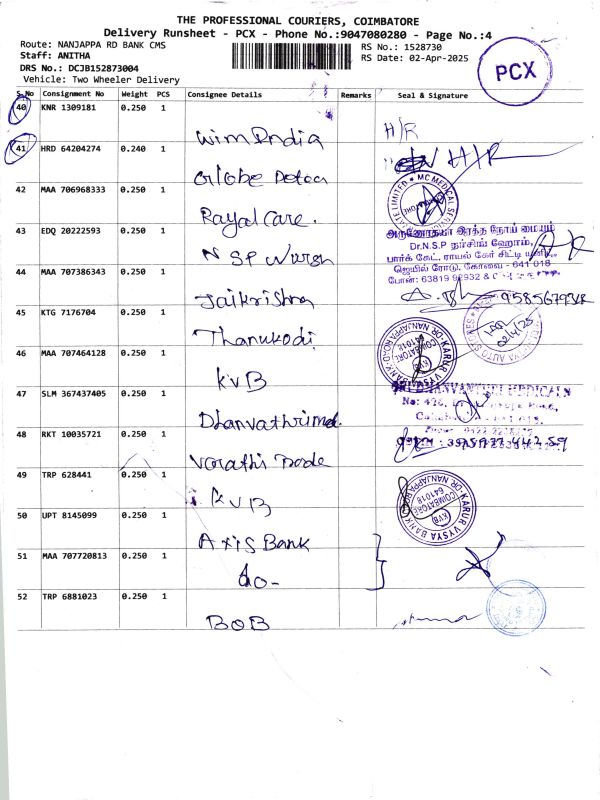 THE PROFESSIONAL COURIERS, COIMBATORE
Delivery Runsheet - PCX - Phone No.:9047080280 - Page No.:4
Route: NANJAPPA RD BANK CMS
Staff: ANITHA
DRS No.: DCJB152873004
Vehicle: Two Wheeler Delivery
RS No.: 1528730
RS Date: 02-Apr-2025
PCX
S.No Consignment No Weight PCS Consignee Details Remarks Seal & Signature
40 KNR 1309181 0.250 1
Wim India H/R
41 HRD 64204274 0.240 1
Globe Detec H/R
42 MAA 706968333 0.250 1
Royal Care.
MC MEDICAL
43 EDQ 20222593 0.250 1
NSP Nursh
அருணோதயா இரத்த நோய் மையம்
Dr.N.S.P நர்சிங் ஹோம்,
பார்க் கேட், ராயல் கேர் சிட்டி யூனிட்,
ஜெயில் ரோடு, கோவை - 641 018
போன்: 63819 92932 &
44 MAA 707386343 0.250 1
Jaikrishna
45 KTG 7176704 0.250 1
Thanukodi
02/4/25
46 MAA 707464128 0.250 1
KVB
KARUR VYSYA BANK
DR. NANJAPPA ROAD
COIMBATORE
641018
47 SLM 367437405 0.250 1
Dhanvathrimed.
48 RKT 10035721 0.250 1
Varathi Trade
49 TRP 628441 0.250 1
KVB
KARUR VYSYA BANK
DR. NANJAPPA ROAD
COIMBATORE
641018
(KVB)
50 UPT 8145099 0.250 1
Axis Bank
51 MAA 707720813 0.250 1
do-
52 TRP 6881023 0.250 1
BOB